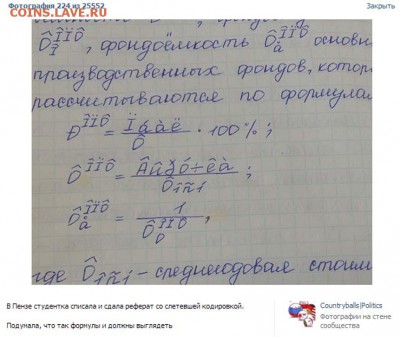 Фотография 224 из 25552
Закрыть
COINS.LAVE.RU
Ô ÎÏÔ I, фондоёмкость Ô ÎÏÔ å основн
производственных фондов, котор
рассчитываются по формулам
Ð ÎÏÔ = Ïðàáë / Ô · 100%;
Ô ÎÏÔ = Âûðó÷êà / Ôîñí;
Ôå ÎÏÔ = 1 / ÔD ÎÏÔ,
где Ôîñí - среднегодовая стоим
В Пензе студентка списала и сдала реферат со слетевшей кодировкой.
Подумала, что так формулы и должны выглядеть
Countryballs|Politics
Фотографии на стене
сообщества